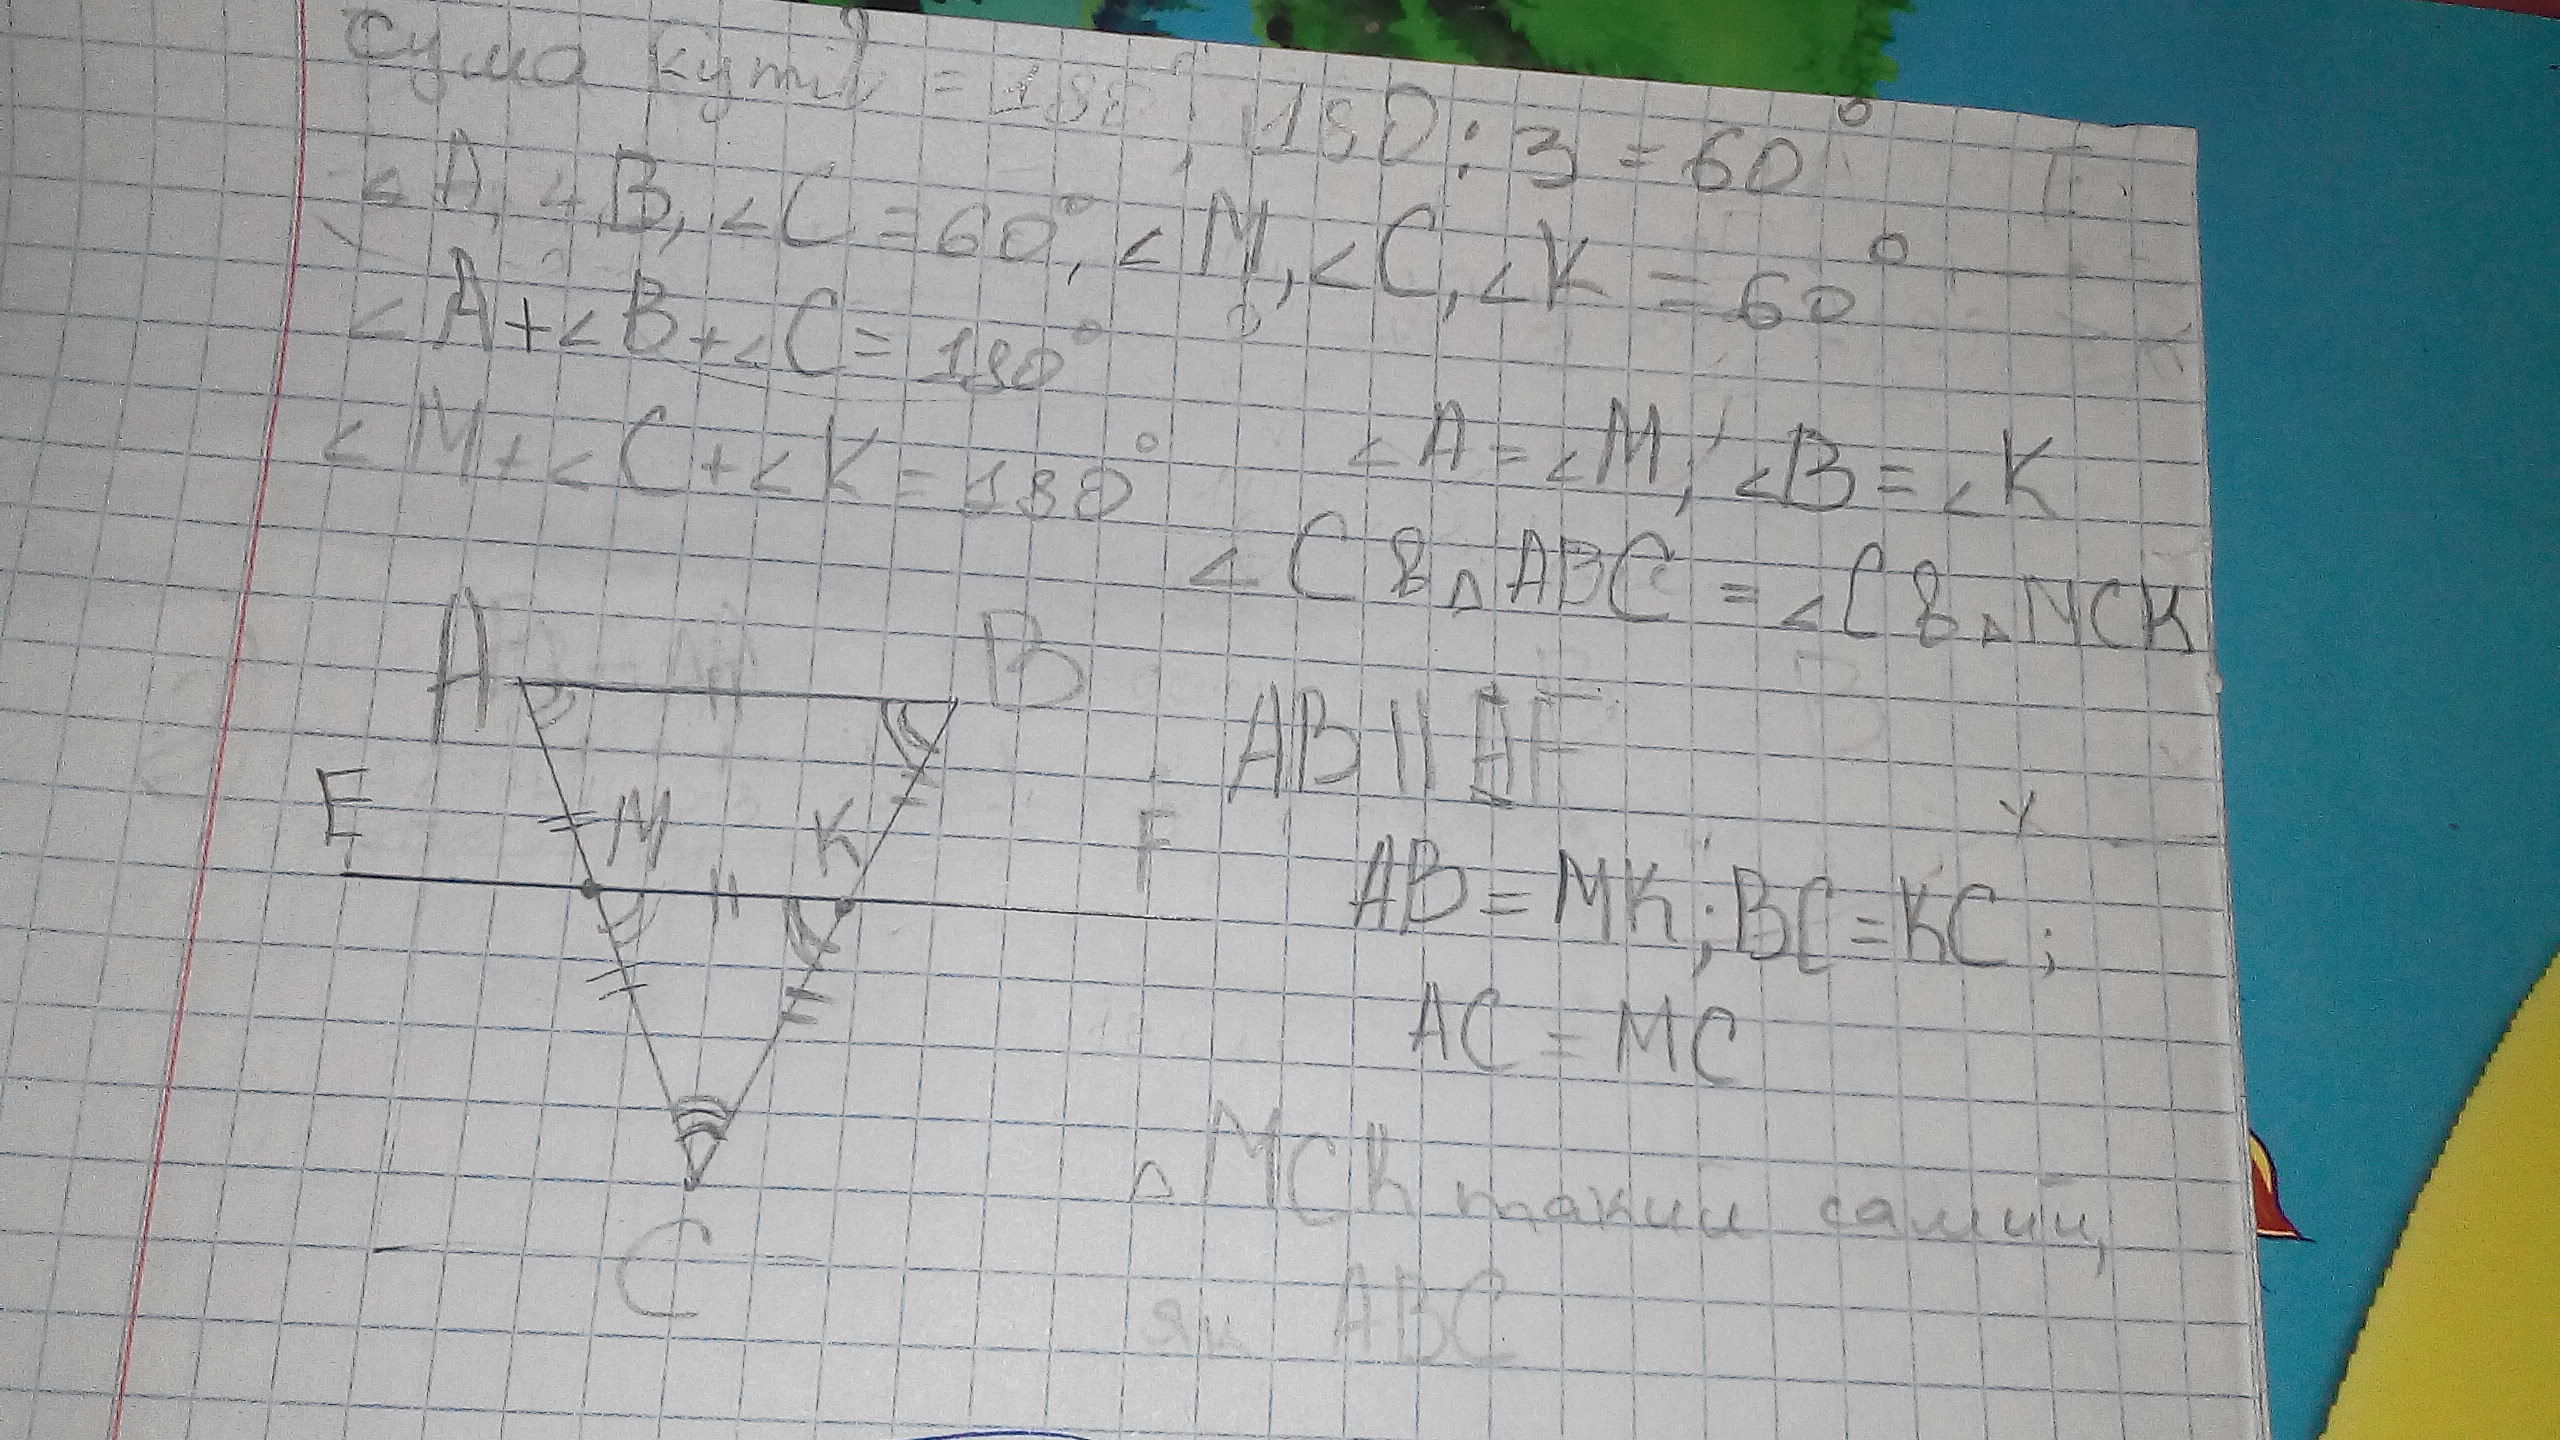 Сума кутів = 180°; 180 : 3 = 60°
∠A, ∠B, ∠C = 60°, ∠M, ∠C, ∠K = 60°
∠A + ∠B + ∠C = 180°
∠M + ∠C + ∠K = 180°
∠A = ∠M; ∠B = ∠K
∠C в △ABC = ∠C в △MCK
A B
AB || AF
E M K F
AB = MK; BC = KC;
AC = MC
△MCK такий самий,
C
як ABC